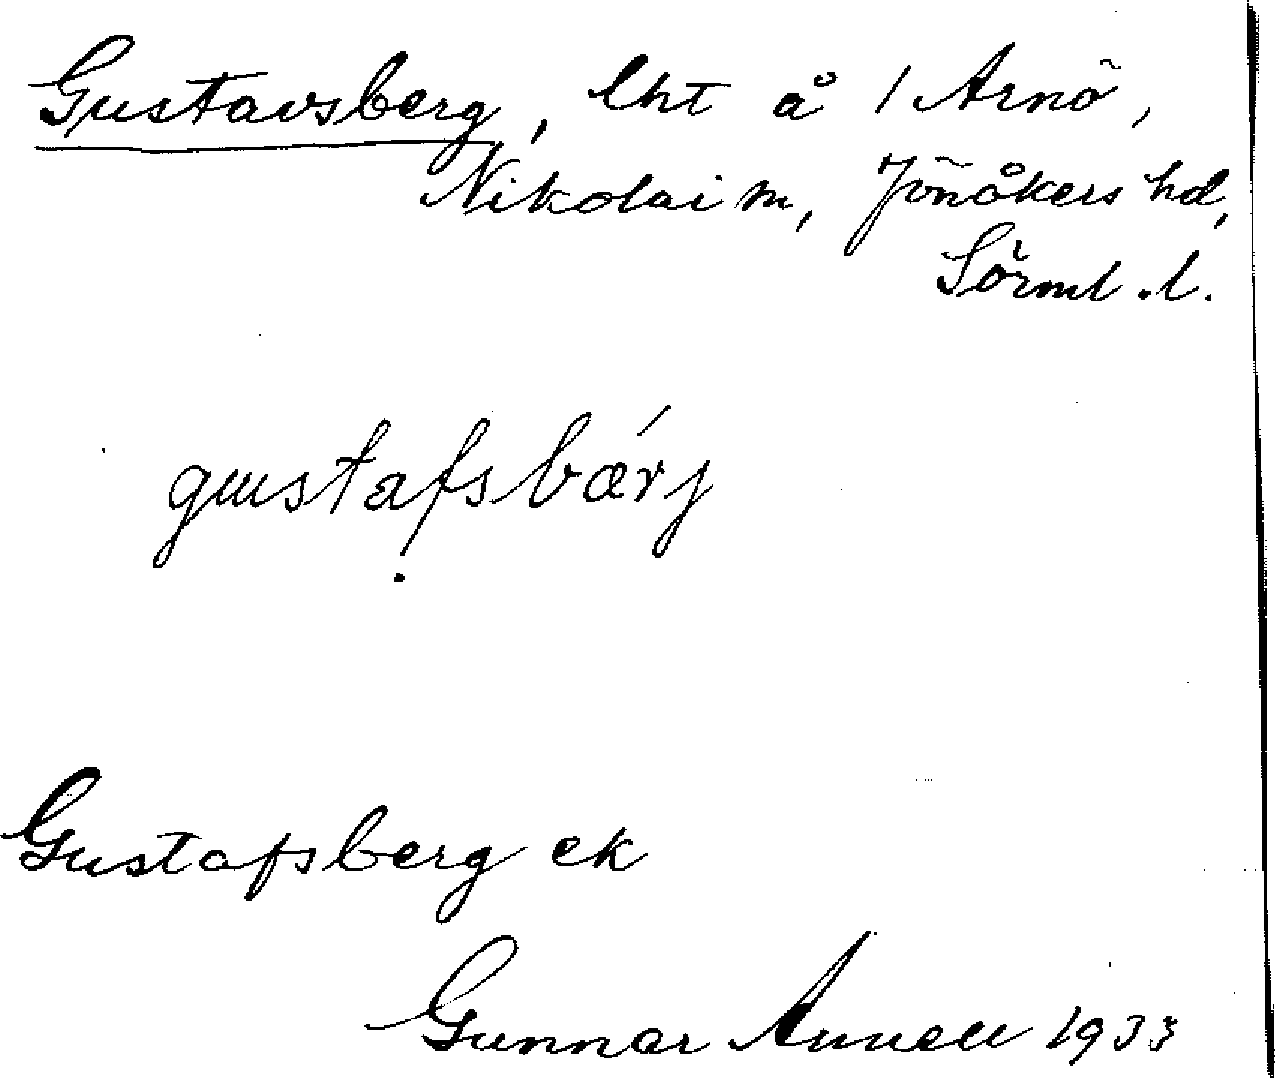 Gustavsberg, lht å 1 Arnö,
Nikolai m, Jönåkers hd,
Sörml. l.
gustafsbärj
Gustafsberg ek
Gunnar Annell 1933